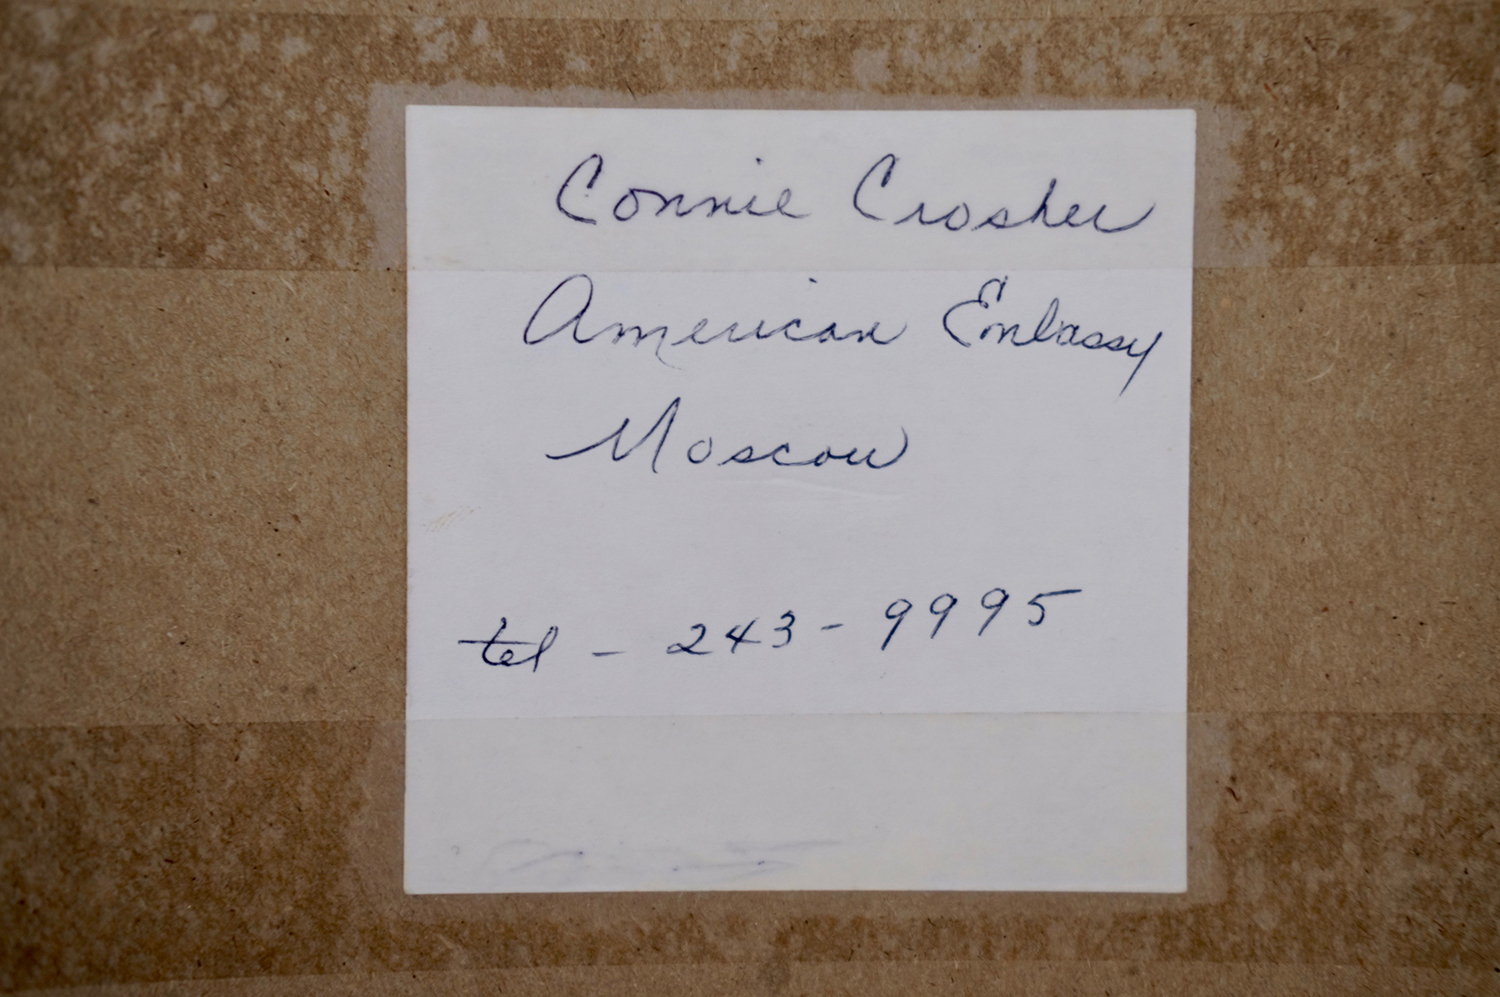 Connie Crosher
American Embassy
Moscow
tel - 243 - 9995